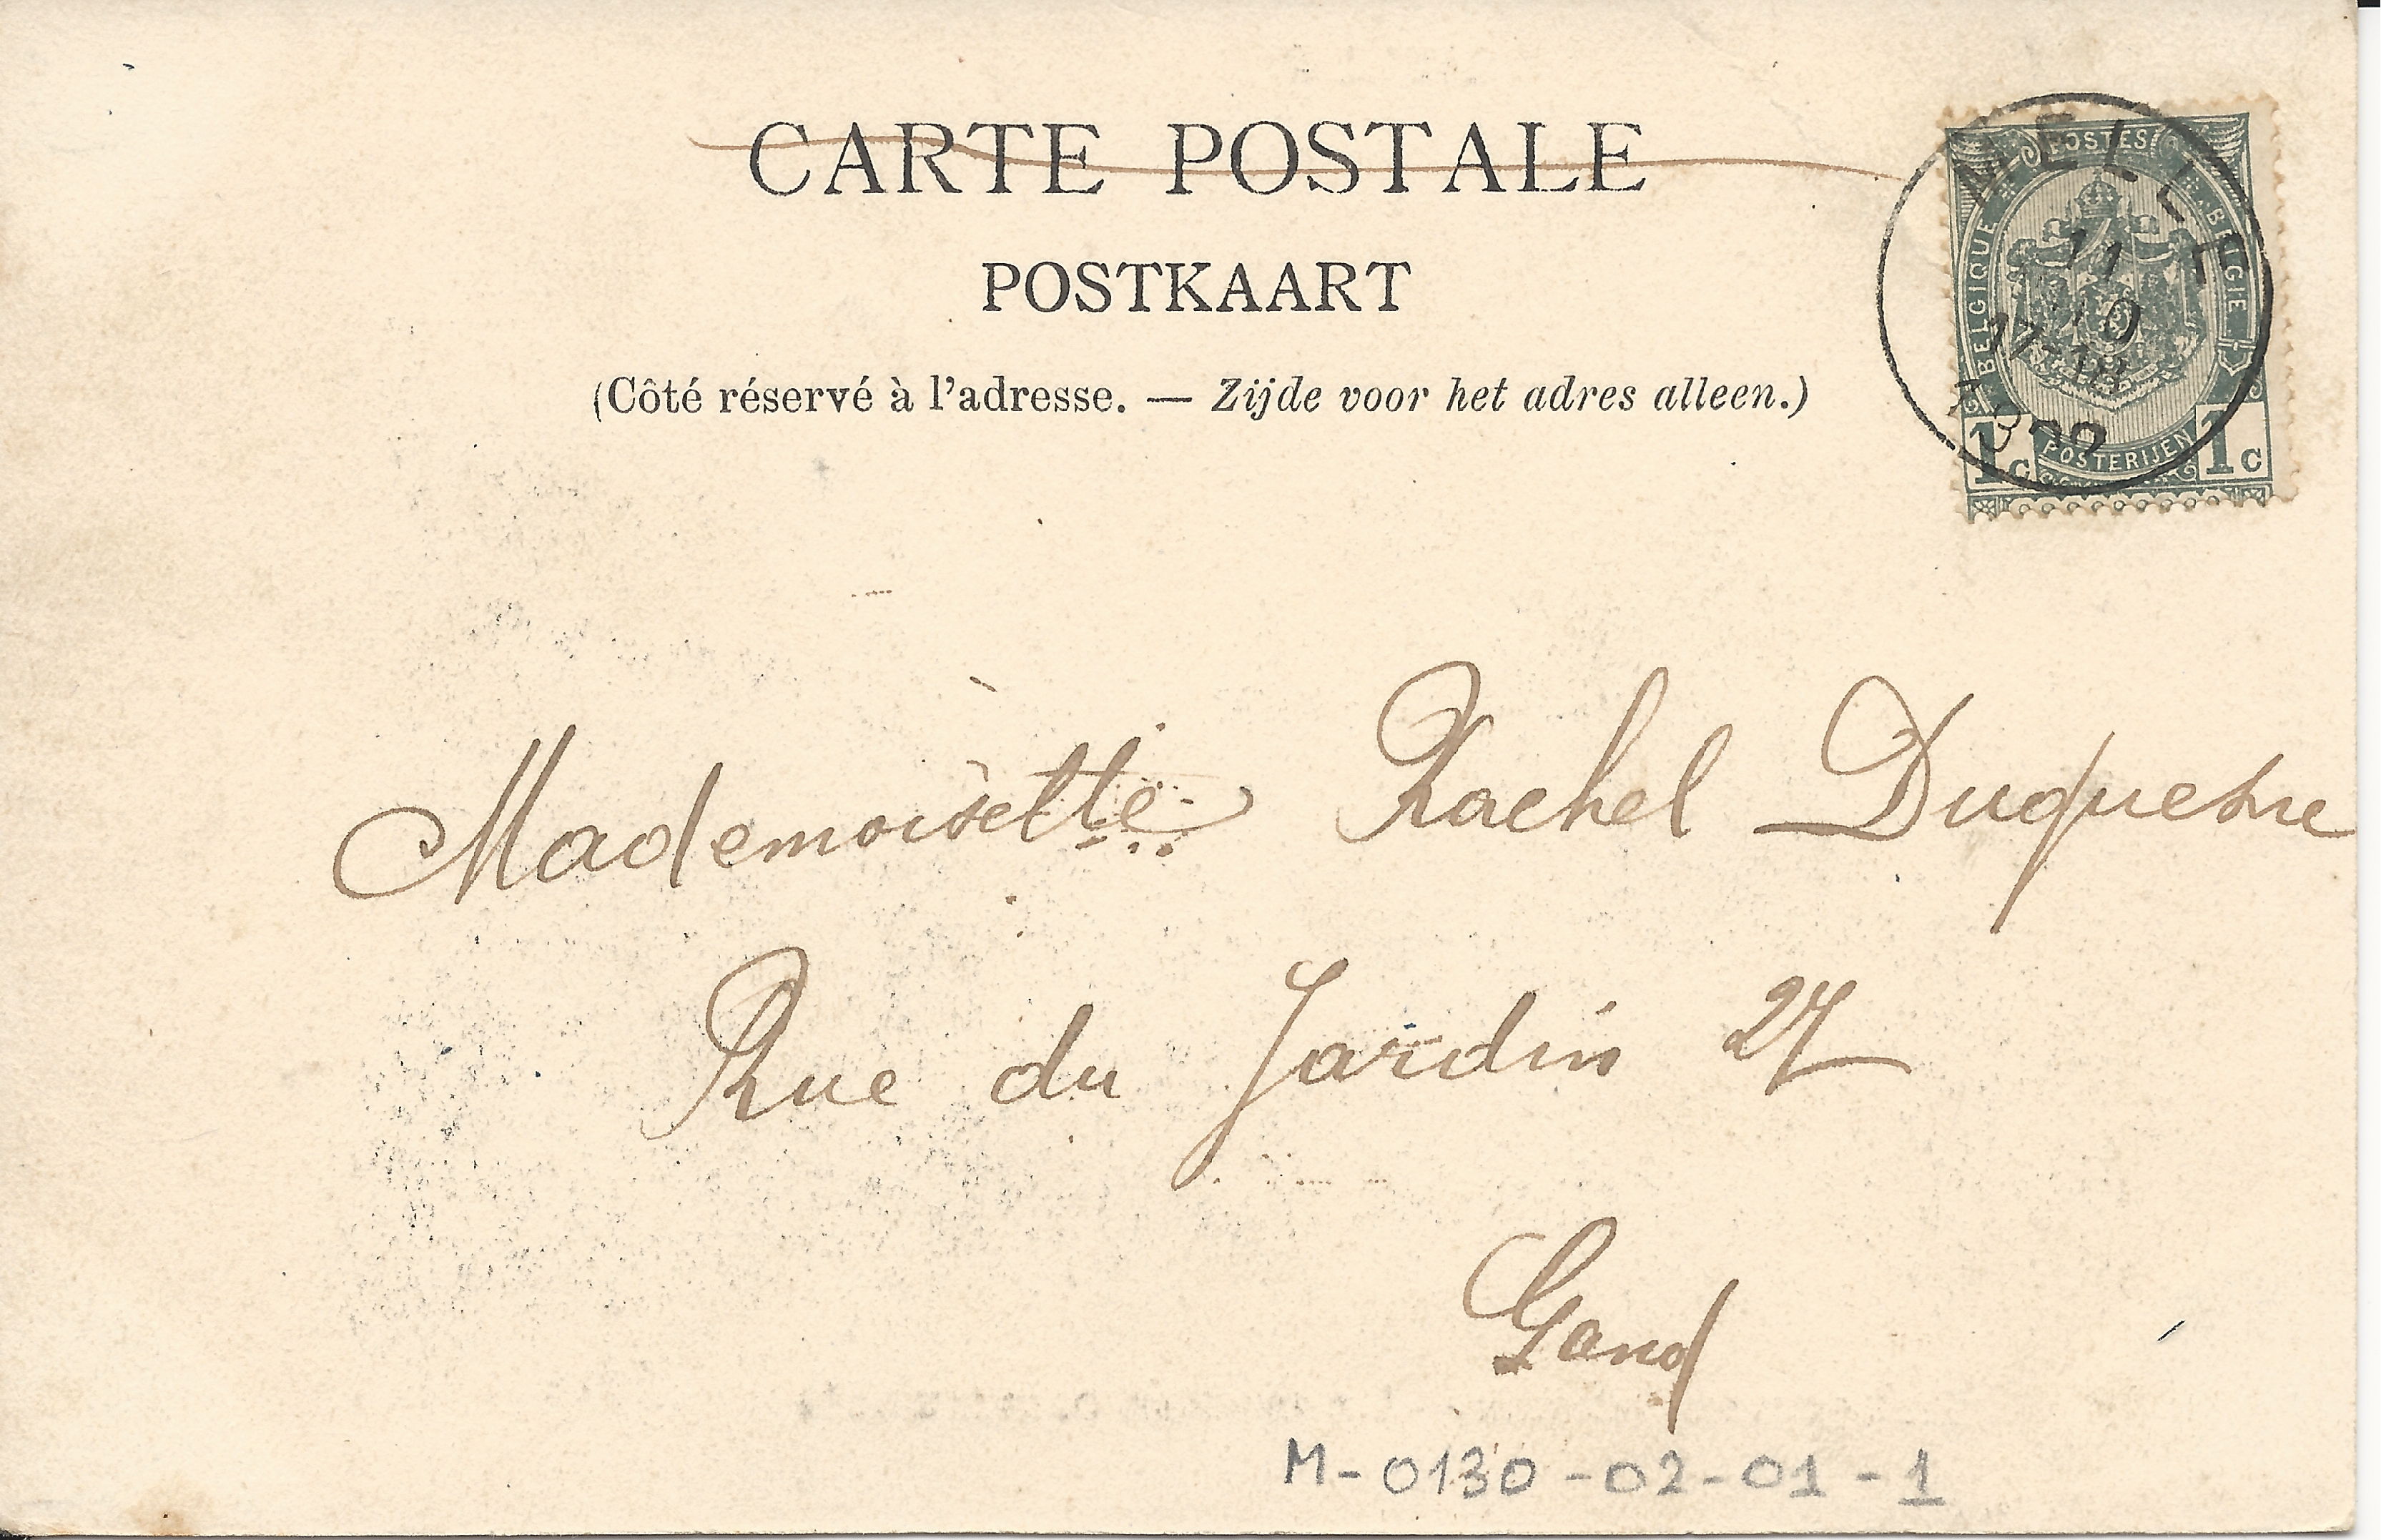 CARTE POSTALE
POSTKAART
(Côté réservé à l'adresse. — Zijde voor het adres alleen.)
MELLE
11
17-18
POSTES
BELGIQUE
BELGIE
1c POSTERIJEN 1c
Mademoiselle Rachel Duquesne
Rue du Jardin 27
Gand
M-0130-02-01-1